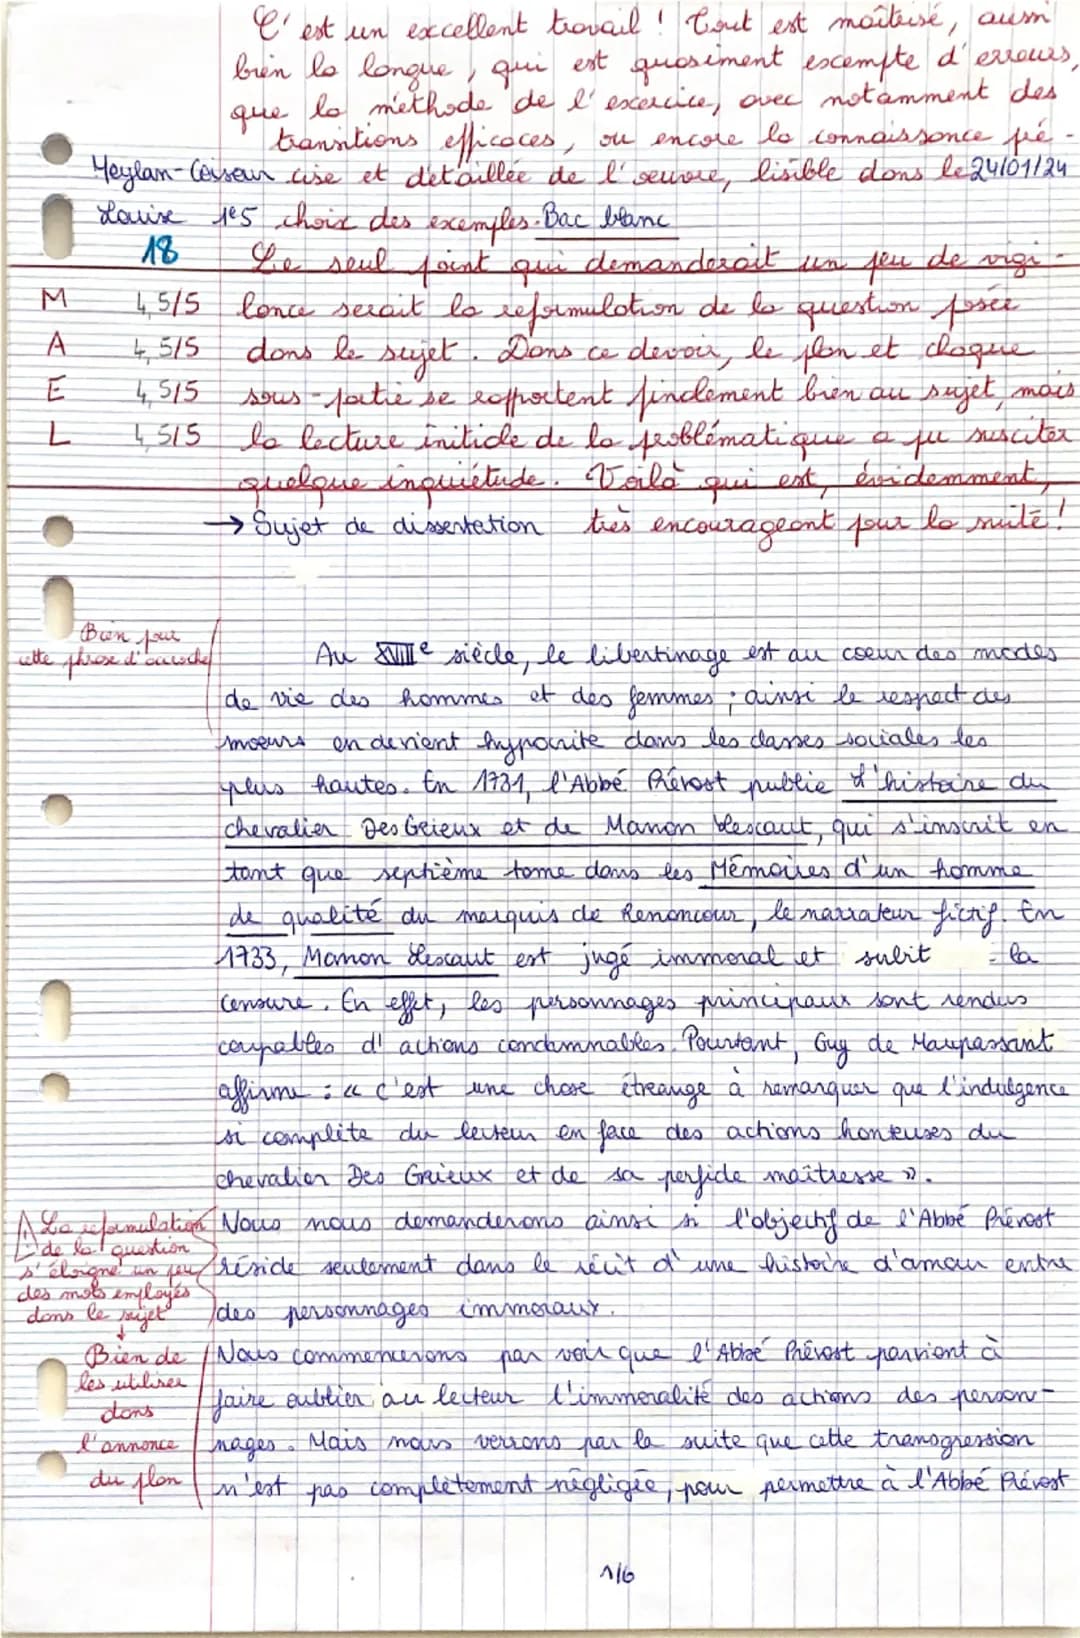 C'est un excellent travail ! Tout est maîtrisé, aussi
bien la langue, qui est quasiment exempte d'erreurs,
que la méthode de l'exercice, avec notamment des
transitions efficaces, ou encore la connaissance pré-
Meylan-Coiseur cise et détaillée de l'oeuvre, lisible dans le 24/01/24
Louise 1e5 choix des exemples. Bac blanc
18 Le seul point qui demanderait un peu de vigi-
M 4,5/5 lance serait la reformulation de la question posée
A 4,5/5 dans le sujet. Dans ce devoir, le plan et chaque
E 4,5/5 sous-partie se rapportent finalement bien au sujet, mais
L 4,5/5 la lecture initiale de la problématique a pu susciter
quelque inquiétude. Voilà qui est, évidemment,
→ Sujet de dissertation très encourageant pour la suite !
Bien pour
cette phrase d'accroche
Au XVIIIe siècle, le libertinage est au coeur des modes
de vie des hommes et des femmes ; ainsi le respect des
moeurs en devient hypocrite dans les classes sociales les
plus hautes. En 1731, l'Abbé Prévost publie L'histoire du
chevalier Des Grieux et de Manon Lescaut, qui s'inscrit en
tant que septième tome dans les Mémoires d'un homme
de qualité du marquis de Renoncour, le narrateur fictif. En
1733, Manon Lescaut est jugé immoral et subit la
censure. En effet, les personnages principaux sont rendus
coupables d'actions condamnables. Pourtant, Guy de Maupassant
affirme : « c'est une chose étrange à remarquer que l'indulgence
si complète du lecteur en face des actions honteuses du
chevalier Des Grieux et de sa perfide maîtresse ».
⚠ La reformulation
de la question
s'éloigne un peu
des mots employés
dans le sujet
↓
Bien de
les utiliser
dans
l'annonce
du plan
Nous nous demanderons ainsi si l'objectif de l'Abbé Prévost
réside seulement dans le récit d'une histoire d'amour entre
des personnages immoraux.
Nous commencerons par voir que l'Abbé Prévost parvient à
faire oublier au lecteur l'immoralité des actions des person-
nages. Mais nous verrons par la suite que cette transgression
n'est pas complètement négligée, pour permettre à l'Abbé Prévost
1/6